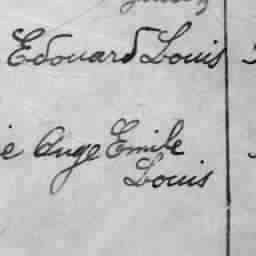 Edouard Louis
Ange Emile
Louis